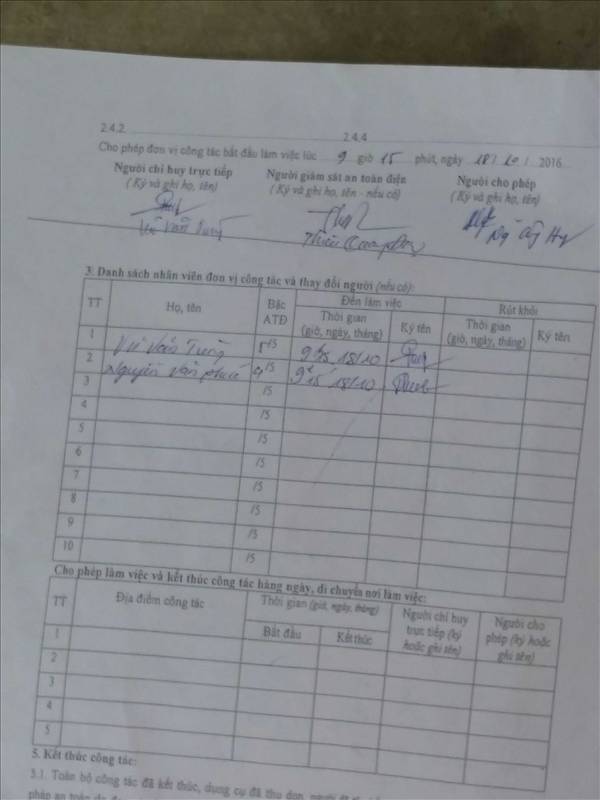 2.4.2 2.4.4
Cho phép đơn vị công tác bắt đầu làm việc lúc 9 giờ 15 phút, ngày 18 / 10 / 2016
Người chỉ huy trực tiếp Người giám sát an toàn điện Người cho phép
( Ký và ghi họ, tên) ( Ký và ghi họ, tên - nếu có) ( Ký và ghi họ, tên)
Vũ Văn
3. Danh sách nhân viên đơn vị công tác và thay đổi người (nếu có):
TT Họ, tên Bậc ATĐ Đến làm việc Rút khỏi
Thời gian (giờ, ngày, tháng) Ký tên Thời gian (giờ, ngày, tháng) Ký tên
1 Vũ Văn /5 18/10
2 Nguyễn Văn 4/5 9h15 18/10
3 /5
4 /5
5 /5
6 /5
7 /5
8 /5
9 /5
10 /5
Cho phép làm việc và kết thúc công tác hàng ngày, di chuyển nơi làm việc:
TT Địa điểm công tác Thời gian (giờ, ngày, tháng) Người chỉ huy trực tiếp (ký hoặc ghi tên) Người cho phép (ký hoặc ghi tên)
Bắt đầu Kết thúc
1
2
3
4
5
5. Kết thúc công tác:
5.1. Toàn bộ công tác đã kết thúc, dụng cụ đã thu dọn, người
pháp an toàn do